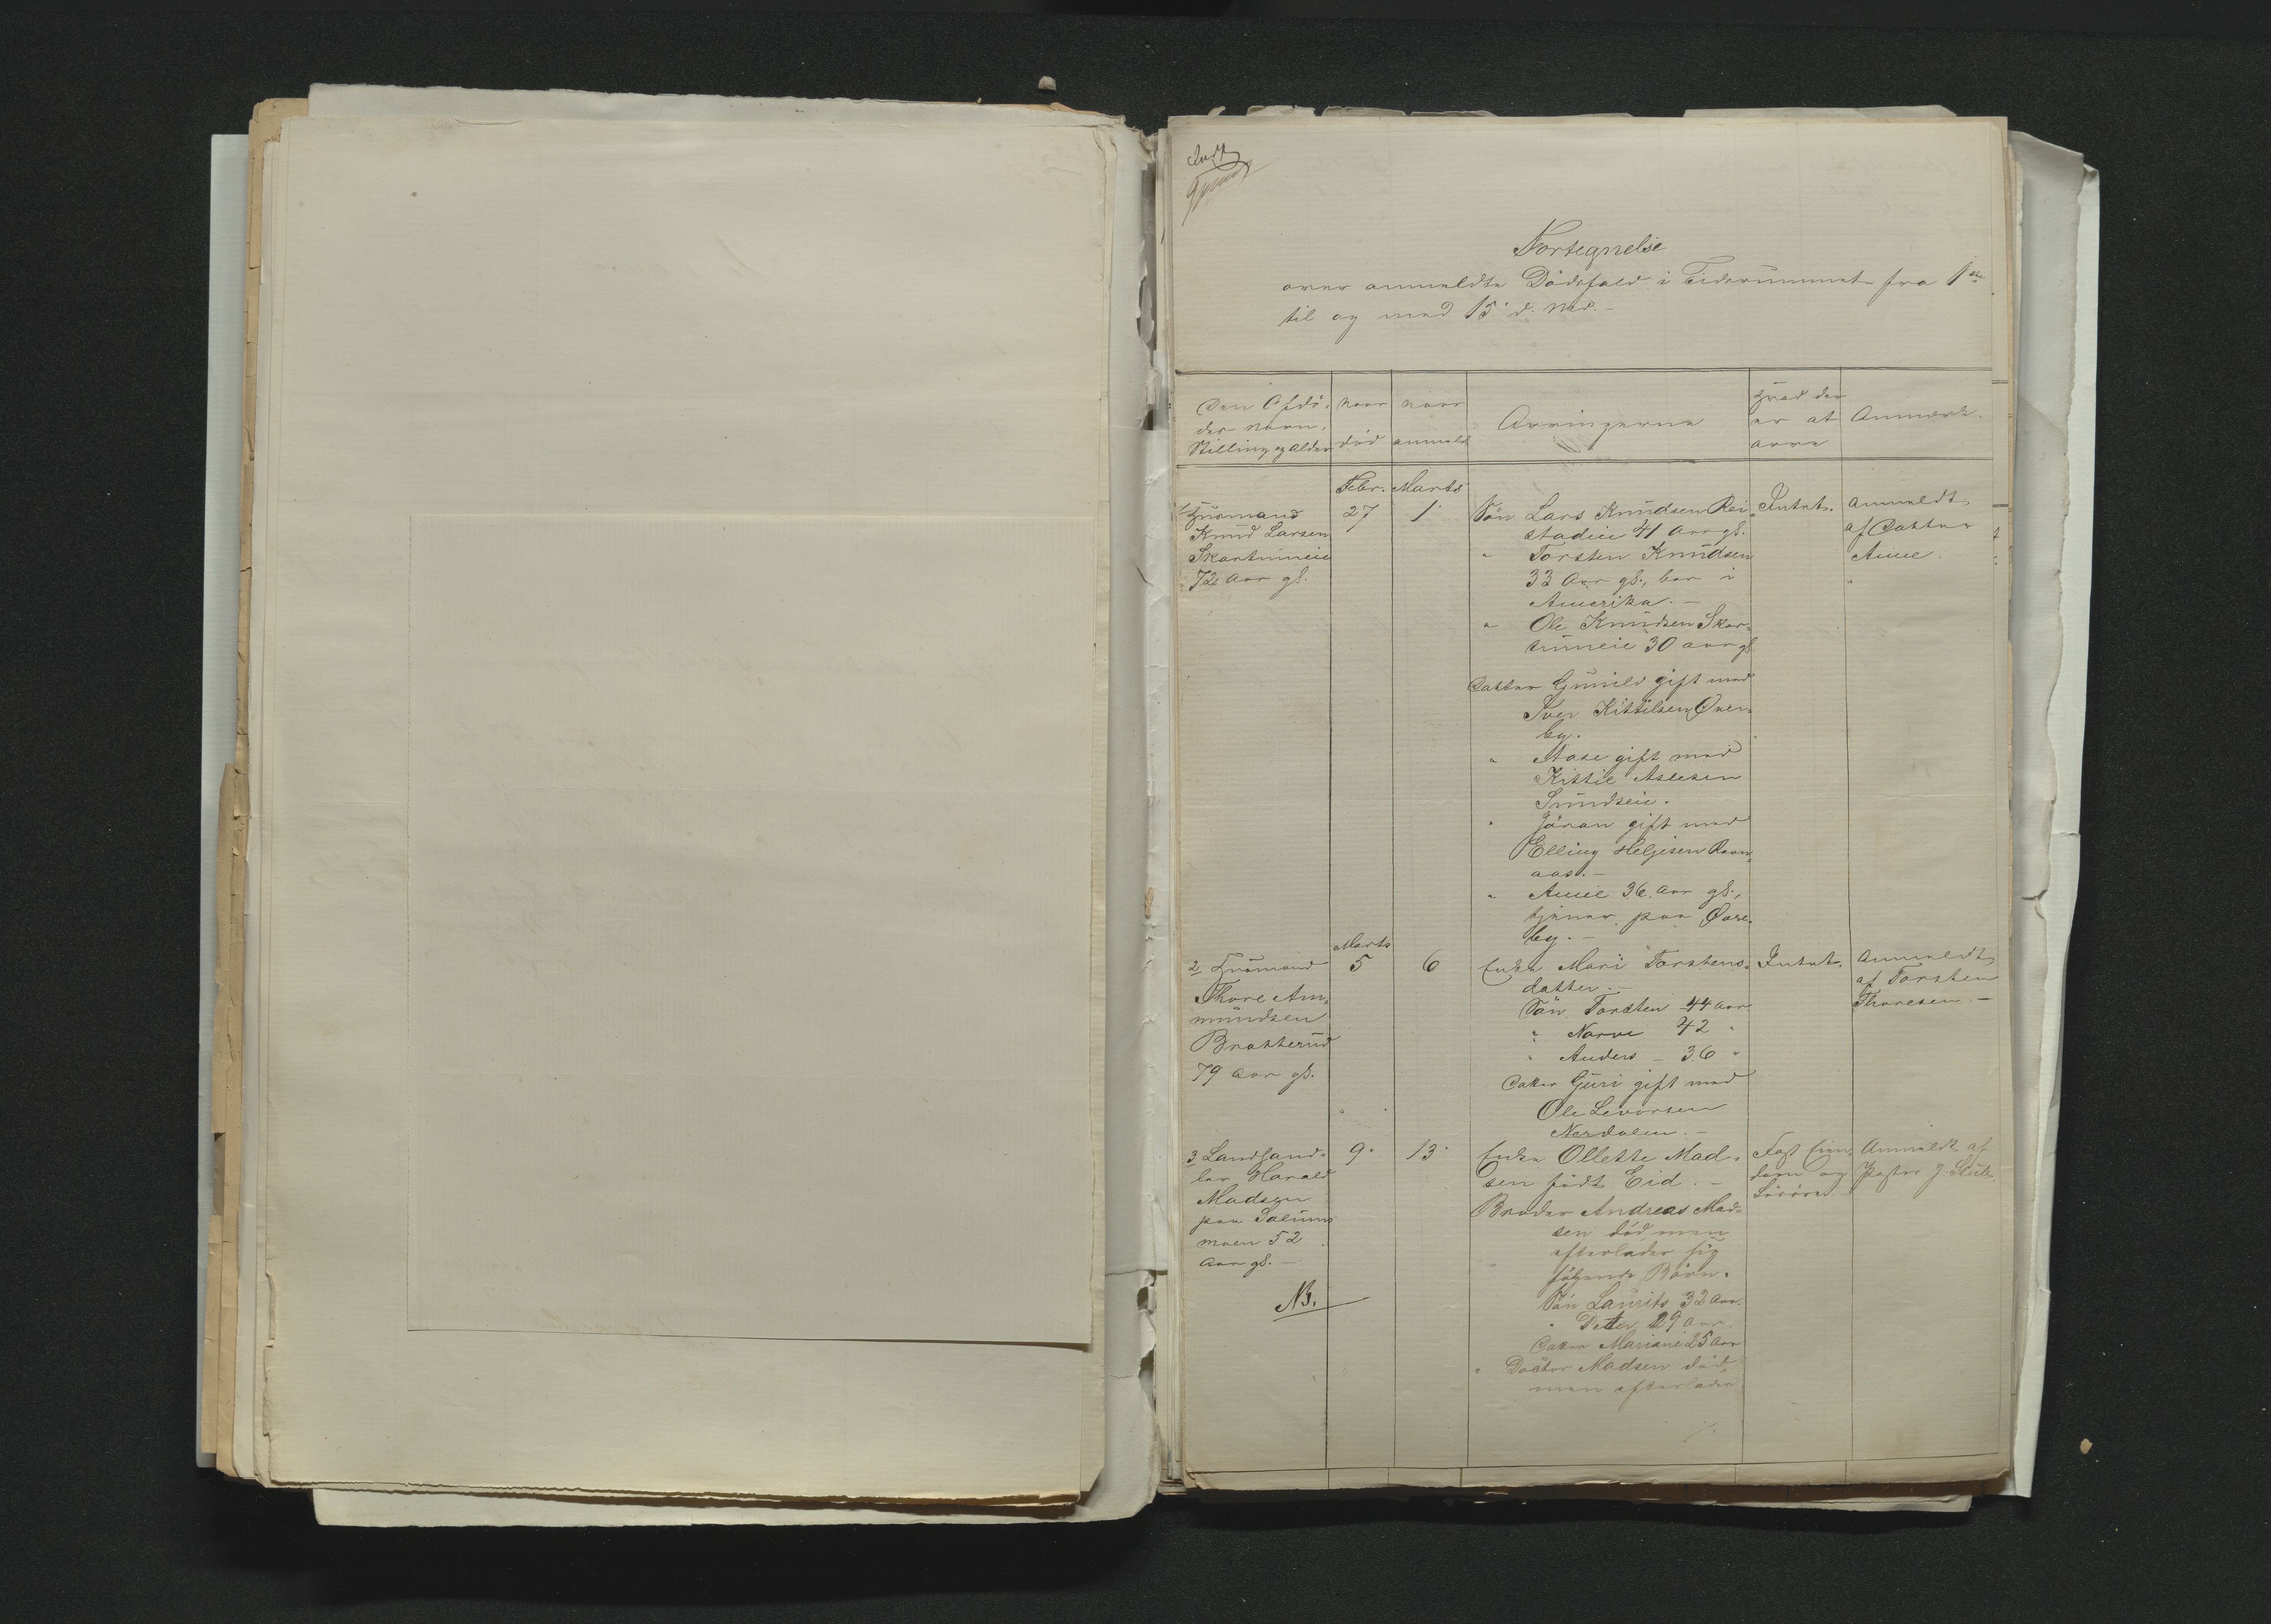 Fortegnelse
over anmeldte Dödsfald i Tidsrummet fra 1ste
til og med 15 d. Md. -
Den Afdö-
des Navn,
Stilling og Alder
naar
död
naar
anmeldt
Arvingerne
Hvad der
er at
arve
Anmærk.
Febr. Marts
1. Huusmand
Knud Larsen
72 Aar gl.
27
1
Sön Lars Knudsen Rei-
stadeie 41 Aar gl.
" Torsten Knudsen
33 Aar gl., bor i
Amerika. -
" Ole Knudsen Skar-
tumeie 30 aar gl
Datter Gunild gift med
Iver Kittilsen Över-
by.
" Aase gift med
Kittil Aslesen
Sundseie.
" Jöran gift med
Elling Helgesen Ravn-
aas. -
" Anne 36 Aar gl.,
tjener paa Över-
by. -
Intet.
Anmeldt
af Datter
Anne.
Marts
2 Huusmand
Thore Am-
mundsen
Bratterud
79 Aar gl.
5
6
Enke Mari Torstens-
datter. -
Sön Torsten 44 Aar
" Narve 42 "
" Anders - 36 "
Datter Guri gift med
Ole Levorsen
Nerdalen. -
Intet.
Anmeldt
af Torsten
Thoresen. -
3 Landhand-
ler Harald
Madsen
paa Salums
moen 52
Aar gl. -
NB.
9
13
Enke Ollette Mad-
sen födt Eid. -
Broder Andreas Mad-
sen död, men
efterlader sig
fölgende Börn.
Sön Laurits 32 Aar.
" Peter 29 Aar.
Datter Mariane 25 Aar
" Doctor Madsen död,
men efterlader
Fast Eien-
dom og
Lösöre
Anmeldt af